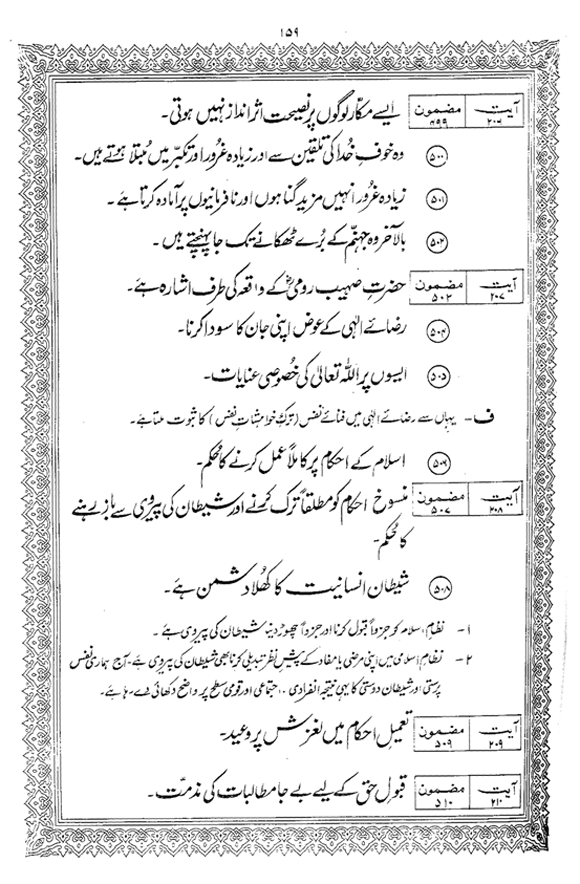 ۱۵۹
آیت ۲۰۶ مضمون ۴۹۹ ایسے مکار لوگوں پر نصیحت اثر انداز نہیں ہوتی۔
۵۰۰ وہ خوفِ خُدا کی تلقین سے اور زیادہ غرور اور تکبّر میں مُبتلا ہوتے ہیں۔
۵۰۱ زیادہ غرُور انہیں مزید گناہوں اور نافرمانیوں پر آمادہ کرتا ہے۔
۵۰۲ بالآخر وہ جہنّم کے بُرے ٹھکانے تک جا پہنچتے ہیں۔
آیت ۲۰۷ مضمون ۵۰۳ حضرتِ صہیب رومیؓ کے واقعہ کی طرف اشارہ ہے۔
۵۰۴ رضائے الٰہی کے عوض اپنی جان کا سودا کرنا۔
۵۰۵ ایسوں پر اللہ تعالیٰ کی خُصوصی عنایات۔
ف۔ یہاں سے رضائے الٰہی میں فنائے نفس (ترکِ خواہشاتِ نفس) کا ثبوت ملتا ہے۔
۵۰۶ اسلام کے احکام پر کاملاً عمل کرنے کا حُکم۔
آیت ۲۰۸ مضمون ۵۰۷ منسوخ احکام کو مطلقاً ترک کرنے اور شیطان کی پیروی سے باز رہنے
کا حُکم۔
۵۰۸ شیطان انسانیت کا کھُلا دشمن ہے۔
۱۔ نظامِ اسلام کو جزواً قبول کرنا اور جزواً چھوڑ دینا شیطان کی پیروی ہے۔
۲۔ نظامِ اسلامی میں اپنی مرضی یا مفاد کے پیشِ نظر تبدیلی کرنا بھی شیطان کی پیروی ہے۔ آج ہماری نفس
پرستی اور شیطان دوستی کا یہی نتیجہ انفرادی، اجتماعی اور قومی سطح پر واضح دکھائی دے رہا ہے۔
آیت ۲۰۹ مضمون ۵۰۹ تعمیلِ احکام میں لغزش پر وعید۔
آیت ۲۱۰ مضمون ۵۱۰ قبولِ حق کے لیے بے جا مطالبات کی مذمّت۔